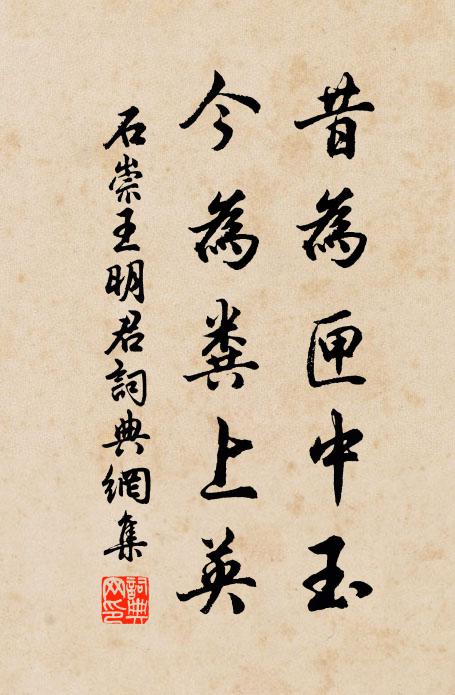 昔為匣中玉
今為糞上英
石崇王明君詞典網集
詞典
网印